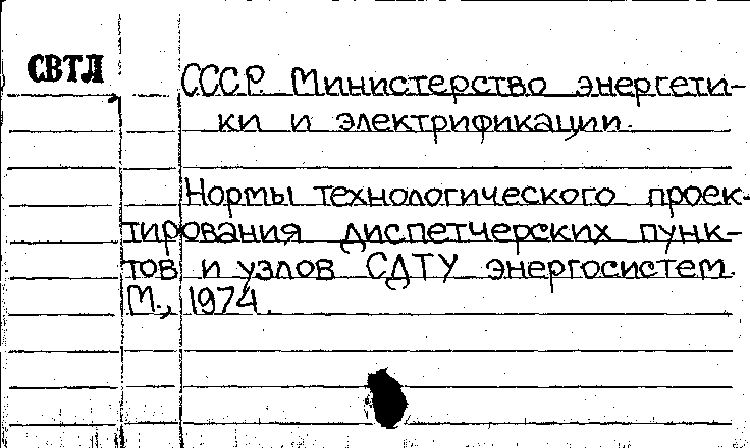 СВТЛ
СССР. Министерство энергети-
ки и электрификации.
Нормы технологического проек-
тирования диспетчерских пунк-
тов и узлов СДТУ энергосистем.
М., 1974.